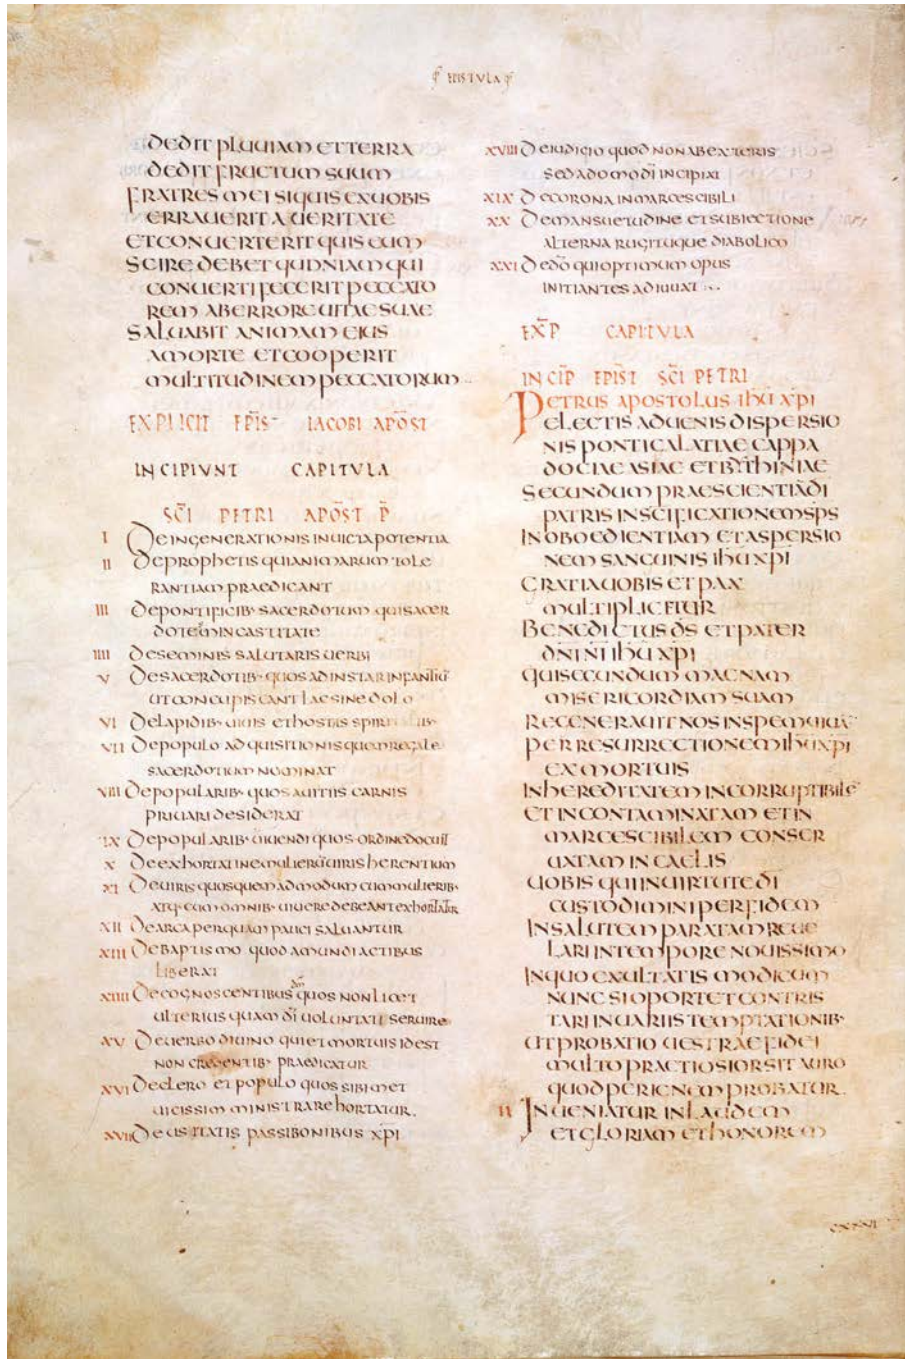 EPISTULA
DEDIT PLUUIAM ET TERRA
DEDIT FRUCTUM SUUM
FRATRES MEI SI QUIS EX UOBIS
ERRAUERIT A UERITATE
ET CONUERTERIT QUIS EUM
SCIRE DEBET QUONIAM QUI
CONUERTI FECERIT PECCATO
REM AB ERRORE UITAE SUAE
SALUABIT ANIMAM EIUS
A MORTE ET COOPERIT
MULTITUDINEM PECCATORUM
EXPLICIT EPĪST IACOBI APŌST
INCIPIUNT CAPITULA
SC̄I PETRI APŌST P̄
I DE INGENERATIONIS INUICTA POTENTIA
II DE PROPHETIS QUI ANIMARUM TOLE
RANTIAM PRAEDICANT
III DE PONTIFICIB· SACERDOTUM QUI SACER
DOTEM IN CASTITATE
IIII DE SEMINIS SALUTARIS UERBI
V DE SACERDOTIB· QUOS AD INSTAR INFANTIU
UT CONCUPISCANT LAC SINE DOLO
VI DE LAPIDIB· UIUIS ET HOSTIS
VII DE POPULO ADQUISITIONIS QUEM REGALE
SACERDOTIUM NOMINAT
VIII DE POPULARIB· QUOS A UITIIS CARNIS
PRIUARI DESIDERAT
IX DE POPULARIB· UIUENDI QUOS ORDINE DOCUIT
X DE EXHORTATINE MULIERU UIRIS HERENTIUM
XI DE UIRIS QUOSQUEMADMODUM CUM MULIERIB·
ATQ· CUM OMNIB· UIUERE DEBEANT EXHORTATUR
XII DE ARCA PER QUAM PAUCI SALUANTUR
XIII DE BAPTISMO QUOD A MUNDI ACTIBUS
LIBERAT
XIIII DE COGNOSCENTIBUS QUOS NON LICET
ULTERIUS QUAM DĪ UOLUNTATI SERUIRE
XV DE UERBO DIUINO QUI ET MORTUIS IDEST
NON CREDENTIB· PRAEDICATUR
XVI DE CLERO ET POPULO QUOS SIBIMET
UICISSIM MINISTRARE HORTATUR.
XVII DE PASSIBONIBUS XPI
XVIII DE IUDICIO QUOD NON AB EXTERIS
SED A DOMO DĪ INCIPIAT
XIX DE CORONA INMARCESCIBILI
XX DE MANSUETUDINE ET SUBIECTIONE
ALTERNA RUGITUQUE DIABOLICO
XXI DE DŌ QUI OPTIMUM OPUS
INITIANTES ADIUUAT
EXP̄ CAPITULA
INCIP̄ EPĪST SC̄I PETRI
PETRUS APOSTOLUS IHŪ XPĪ
ELECTIS ADUENIS DISPERSIO
NIS PONTI GALATIAE CAPPA
DOCIAE ASIAE ET BYTHINIAE
SECUNDUM PRAESCIENTIĀ DĪ
PATRIS IN SC̄IFICATIONEM SPS
IN OBOEDIENTIAM ET ASPERSIO
NEM SANGUINIS IHŪ XPĪ
GRATIA UOBIS ET PAX
MULTIPLICETUR
BENEDICTUS DS ET PATER
DNI NI IHŪ XPĪ
QUI SECUNDUM MAGNAM
MISERICORDIAM SUAM
REGENERAUIT NOS IN SPEM UIUĀ
PER RESURRECTIONEM IHŪ XPĪ
EX MORTUIS
IN HEREDITATEM INCORRUPTIBILĒ
ET INCONTAMINATAM ET IN
MARCESCIBILEM CONSER
UATAM IN CAELIS
UOBIS QUI IN UIRTUTE DĪ
CUSTODIMINI PER FIDEM
IN SALUTEM PARATAM REUE
LARI IN TEMPORE NOUISSIMO
IN QUO EXULTATIS MODICUM
NUNC SI OPORTET CONTRIS
TARI IN UARIIS TEMPTATIONIB·
UT PROBATIO UESTRAE FIDEI
MULTO PRACTIOSIOR SIT AURO
QUOD PERIENEM PROBATUR.
II INUENIATUR IN LAUDEM
ET GLORIAM ET HONOREM